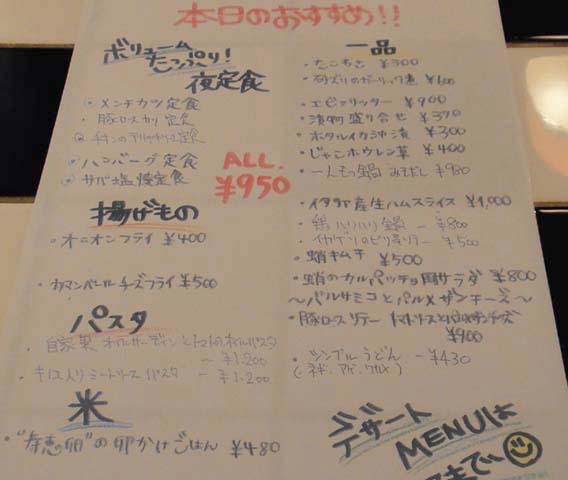 本日のおすすめ!!
ボリューム
たっぷり!
夜定食
メンチカツ定食
豚ロースカツ定食
チキンのテリヤキソース定食
ハンバーグ定食
サバ塩焼定食
ALL.
¥950
揚げもの
・オニオンフライ ¥400
・カマンベールチーズフライ ¥500
パスタ
・自家製オイルサーディンとトマトのオイルパスタ
― ¥1.200
・ミートソースパスタ
― ¥1.200
米
・"寿恵卵"の卵かけごはん ¥480
一品
・たこわさ ¥300
・砂ズリのガーリック ¥600
・エビフリッター ¥900
・漬物盛り合せ ¥370
・ホタルイカ沖漬 ¥300
・じゃこホウレン草 ¥400
・一人もつ鍋 みそだし ¥980
・イタリア産生ハムスライス ¥1,000
・鶏ハリハリ鍋 ― ¥800
・イカゲソのピリ辛 ― ¥500
・蛸キムチ ¥500
・蛸のカルパッチョ風サラダ ¥800
～バルサミコとパルメザンチーズ～
・豚ロースソテー トマトソースとチーズ
¥900
・シンプルうどん ― ¥430
デザート
MENUは